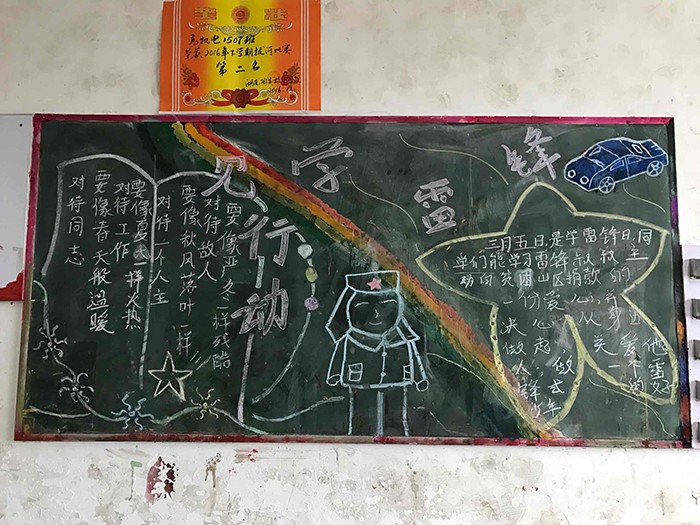 奖状
机电1507班
荣获2016年下学期拔河比赛
第二名
2016.12
学雷锋
见行动
对待同志
要像春天般温暖
对待工作
要像夏天一样火热
对待一个人主
要像秋风落叶一样
对待故人
要像严冬一样残酷
三月五日,是学雷锋日,同
学们能学习雷锋叔叔的主
动向贫困山区捐款,
一份爱心,从身